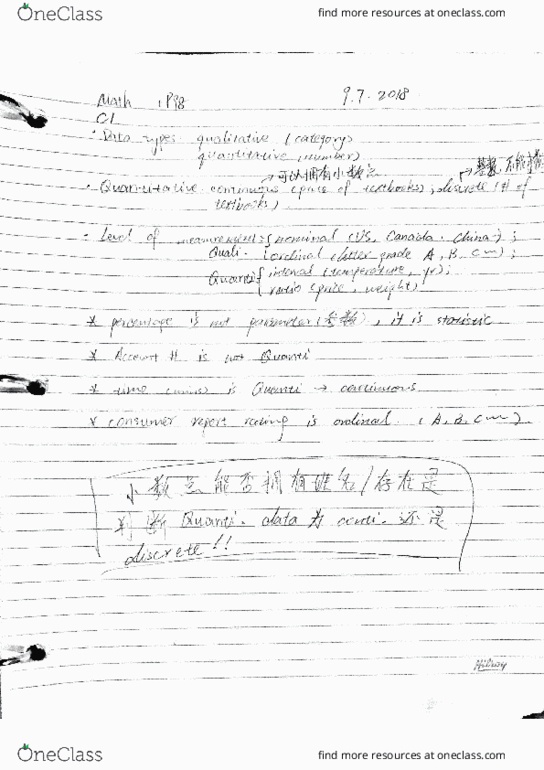 OneClass
find more resources at oneclass.com
Math 1P98
9.7.2018
C1
· Data types: qualitative (category)
quantitative (number)
→ 可以拥有小数点
→ 整数, 不能
· Quantitative: continuous (price of textbooks), discrete (# of
textbooks)
· Level of measurements: { nominal (US, Canada, China);
Quali. (ordinal (letter grade A, B, C
Quanti { interval (temperature, yr);
( ratio (price, weight)
* percentage is not parameter (参数), it is statistic
* Account # is not Quanti
* time (mins) is Quanti → continuous
* consumer report rating is ordinal. (A, B, C
小数点能否拥有 /存在是
判断 Quanti. data 为 conti. 还是
discrete!!
OneClass
find more resources at oneclass.com